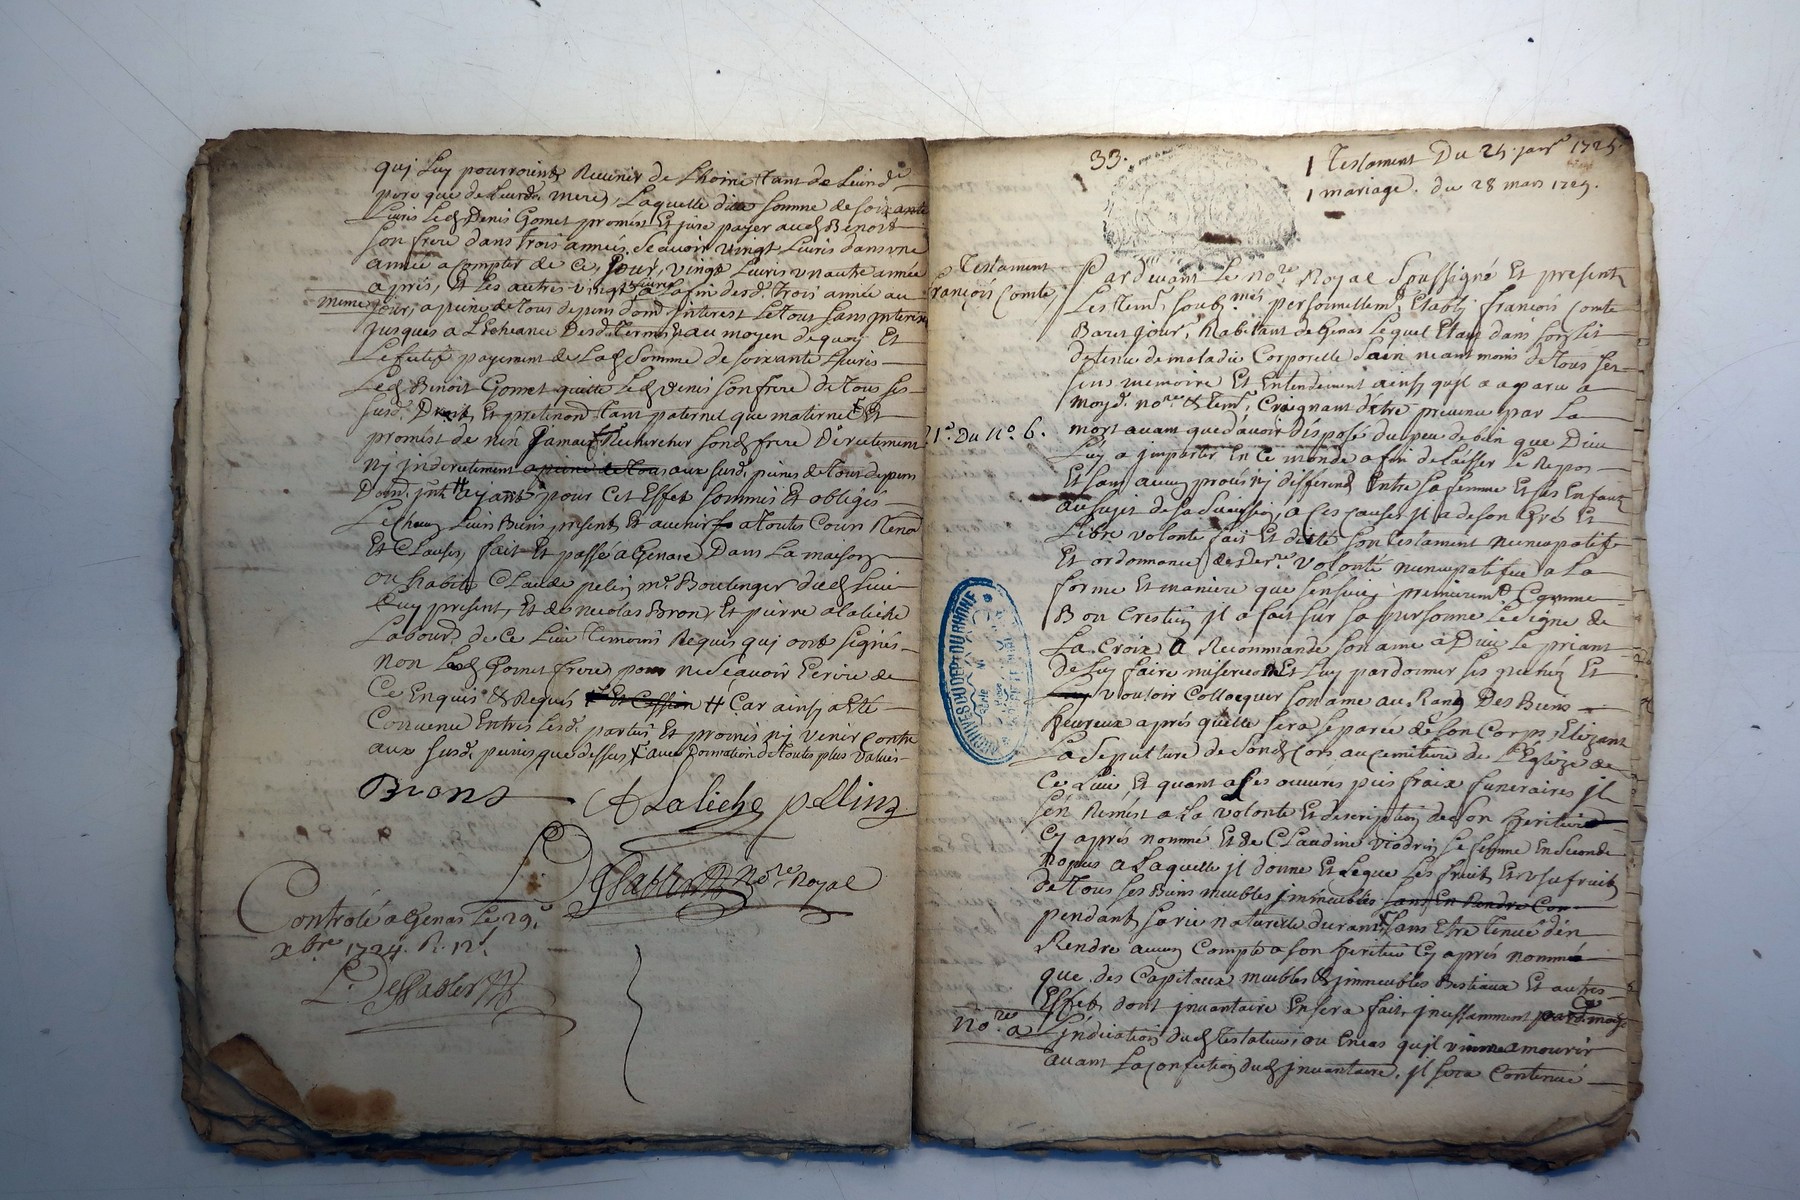 quj Luy pourroient Reuenir de Lhoirie tant de Leurd.
pere que de Leurd. mere, Laquelle ditte somme de soixante
Liuris Led. Denis Gomet promést Et jure payer aud. Benoit
son frere dans trois années, scauoir vingt Liuris dans vne
année a compter de ce jour, vingt Liuris vn autre année
aprés, Et Les autres vingt Liures a La fin desd. trois année au
meme jour, a peine de tous depens dom. Interest Le tout sans jnterest
jusques a L'echeance Desd. Termes, Et au moyen de quoy Et
Le payement de Lad. Somme de soixante Liuris
Led. Benoit Gomet quitte Led. Denis son frere de tous ses
susd. Droits Et pretenõns tant paternel que maternel Et
promést de n'en jamais Rechercher sond. frere Directement
nj jndirectement a peine de tous aux susd. peines de tous depens
Dom. jnt. ayants pour Cet Effet soumis Et obligés
Leurs Biens present Et auenir a toutes Cours Renõn
Et Clauses, fait Et passé a Genas Dans La maison
ou habite Claude pelin m.e Boulenger dud. Lieu
Luy present, Et de nicolas Bron, Et pierre alaliche
Labour. de Ce Lieu temoins Requis quj ont signés
non Lesd. Gomet frere pour ne scauoir Ecrire de
Ce Enquis & Requis Et Cession # Car ainsj a Eté
Conuenu Entres Lesd. parties Et promis nj venir contre
aux susd. peines que dessus, auec donation de toutes plus values
Brons Alaliche pellin
L. Dessablon No.re Royal
Controlé a Genas Le 29.
xbre 1724. R. 12 s.
L. Dessablon
33.
1 Testament Du 24. janr 1725.
1 mariage. du 28 mars 1725.
Testament
françois Comte
1.e Du N.o 6.
Pardeuant Le no.re Royal Soussigné Et present
Les tem. soub. més personnellem. Etablj françois Comte
habitant de Genas Lequel Etant dans son Lit
detenu de maladie Corporelle sain neantmoins de tous ses
sens memoire Et Entendement ainsj qu'jl a aparu a
moyd. no.re & tem. Craignant d'etre preuenu par La
mort auant que d'auoir disposé du peu de bien que Dieu
Luy a jmparter En Ce monde a fin de Laisser Le Repos
Et sans aucun procés nj different Entre sa femme Et ses Enfant
au sujet de sa suession, a Ces causes jl a de son Gré Et
Libre volonté fait Et dicté son testament nuncupatif
Et ordonnance de der.re volonté nuncupatiue a La
forme Et maniere que s'ensuit, premierem. Comme
Bon Crestien jl a fait sur sa personne Le signe de
La Croix a Recommandé son ame à Dieu Le priant
de Luy faire misericorde Et Luy pardonner ses pechés Et
vouloir Collocquer son ame au Rang Des Biens
heureux aprés qu'elle sera separée de son Corps, Elizant
La sepulture de sond. Cors au cemitiere de L'Eglize de
Ce Lieu, Et quant a ses oeuures pies fraix funeraires jl
s'en Remést a La volonté Et discription de son heritier
Cy aprés nommé Et de Claudine viodrin se femme En seconde
nopces a Laquelle jl donne Et Legue Les fruits Et vsufruits
de tous ses Biens meubles jmmeubles sans En Rendre Con
pendant sa vie naturelle durant, sans Etre tenue d'en
Rendre aucun Compte a son heritier Cy aprés nommé
que des Capitaux meubles & jmmeubles Bestiaux Et autres
Effets dont jnuantaire En sera fait jncessamment pard. moy
No.re a L'jndication dud. testateur, ou Encas qu'jl vienne a mourir
auant La confection dud. jnuantaire, jl sera Continué
ARCHIVES DU DEPT DU RHÔNE